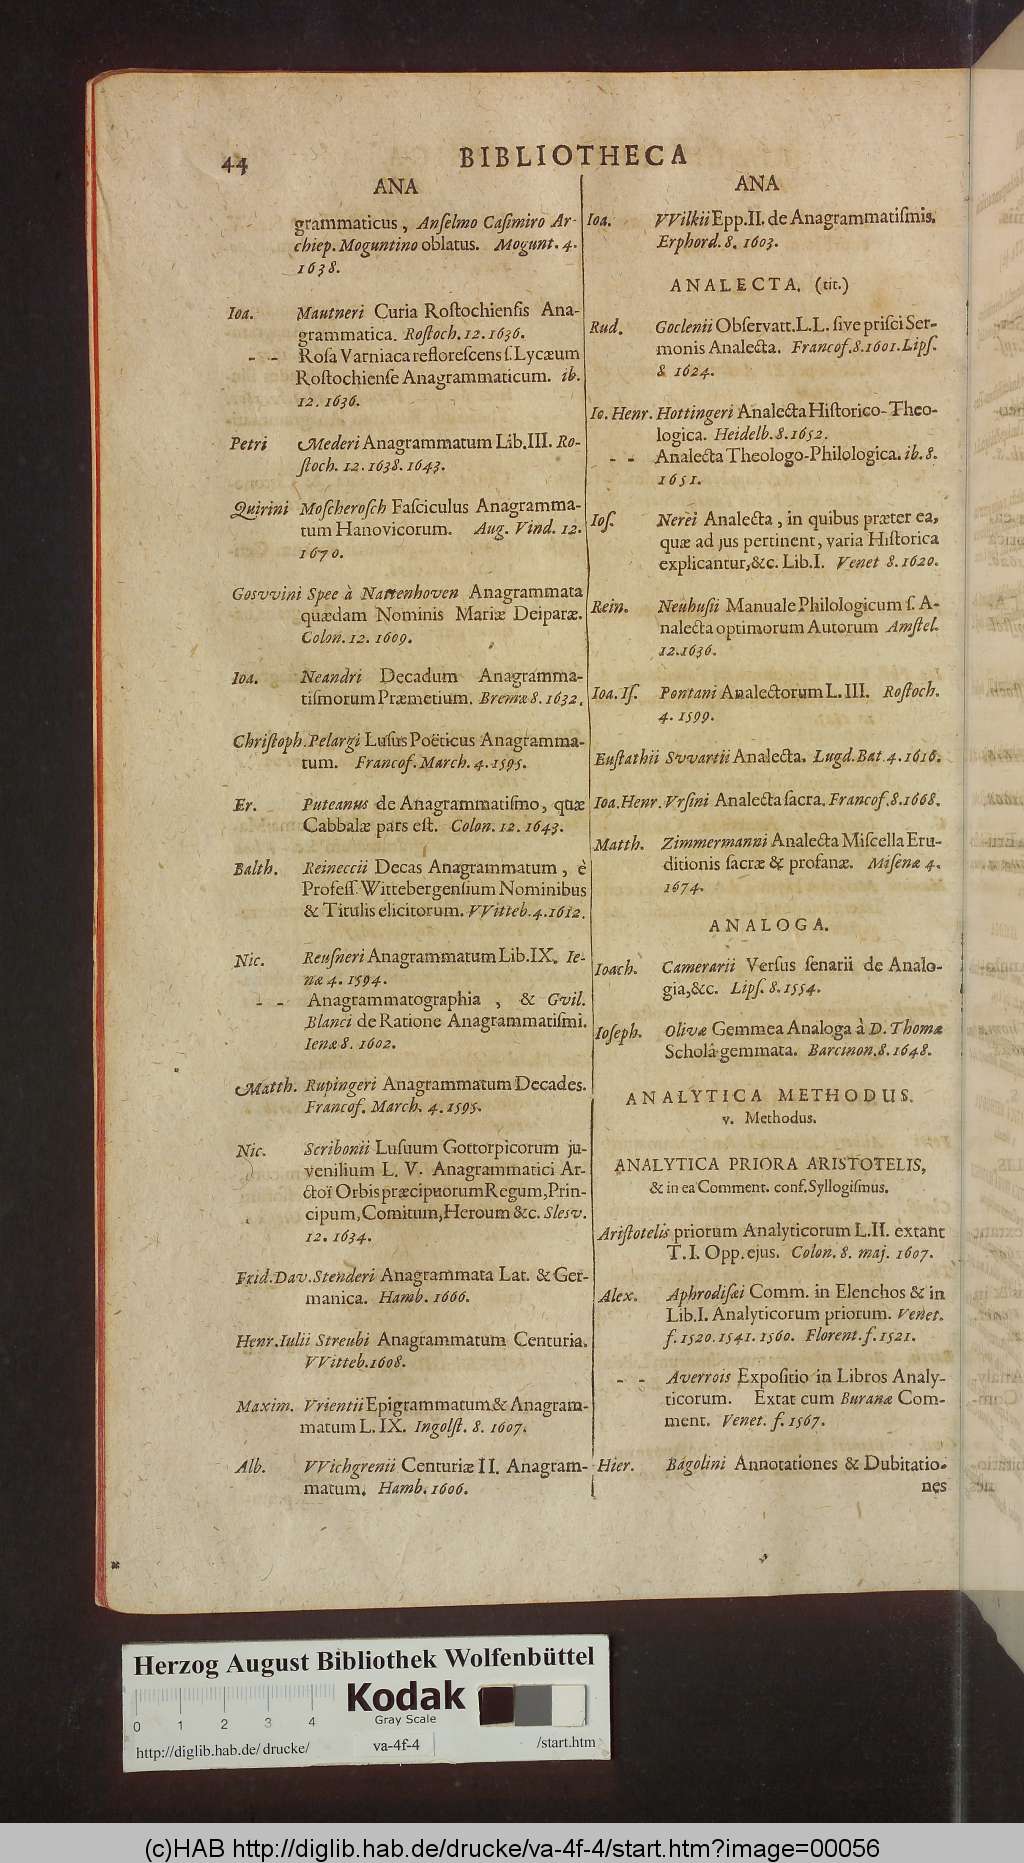 44
BIBLIOTHECA
ANA
grammaticus, Anſelmo Caſimiro Ar-
chiep. Moguntino oblatus. Mogunt. 4.
1638.
Ioa. Mautneri Curia Roſtochienſis Ana-
grammatica. Roſtoch. 12. 1636.
- - Roſa Varniaca refloreſcens ſ. Lycæum
Roſtochienſe Anagrammaticum. ib.
12. 1636.
Petri Mederi Anagrammatum Lib. III. Ro-
ſtoch. 12. 1638. 1643.
Quirini Moſcheroſch Faſciculus Anagramma-
tum Hanovicorum. Aug. Vind. 12.
1670.
Gosvvini Spee à Nattenhoven Anagrammata
quædam Nominis Mariæ Deiparæ.
Colon. 12. 1609.
Ioa. Neandri Decadum Anagramma-
tiſmorum Præmetium. Bremæ 8. 1632.
Chriſtoph. Pelargi Luſus Poëticus Anagramma-
tum. Francof. March. 4. 1595.
Er. Puteanus de Anagrammatiſmo, quæ
Cabbalæ pars eſt. Colon. 12. 1643.
Balth. Reineccii Decas Anagrammatum, è
Profeſſ. Wittebergenſium Nominibus
& Titulis elicitorum. VVitteb. 4. 1612.
Nic. Reuſneri Anagrammatum Lib. IX. Ie-
næ 4. 1594.
- - Anagrammatographia, & Gvil.
Blanci de Ratione Anagrammatiſmi.
Ienæ 8. 1602.
Matth. Rupingeri Anagrammatum Decades.
Francof. March. 4. 1595.
Nic. Scribonii Luſuum Gottorpicorum ju-
venilium L. V. Anagrammatici Ar-
ctoï Orbis præcipuorum Regum, Prin-
cipum, Comitum, Heroum &c. Slesv.
12. 1634.
Frid. Dav. Stenderi Anagrammata Lat. & Ger-
manica. Hamb. 1666.
Henr. Iulii Streubi Anagrammatum Centuria.
VVitteb. 1608.
Maxim. Vrientii Epigrammatum & Anagram-
matum L. IX. Ingolſt. 8. 1607.
Alb. VVichgrenii Centuriæ II. Anagram-
matum. Hamb. 1606.
ANA
Ioa. VVilkii Epp. II. de Anagrammatiſmis.
Erphord. 8. 1603.
ANALECTA. (tit.)
Rud. Goclenii Obſervatt. L. L. ſive priſci Ser-
monis Analecta. Francof. 8. 1601. Lipſ.
8 1624.
Io. Henr. Hottingeri Analecta Hiſtorico-Theo-
logica. Heidelb. 8. 1652.
- - Analecta Theologo-Philologica. ib. 8.
1651.
Ioſ. Nerei Analecta, in quibus præter ea,
quæ ad jus pertinent, varia Hiſtorica
explicantur, &c. Lib. I. Venet 8. 1620.
Rein. Neuhuſii Manuale Philologicum ſ. A-
nalecta optimorum Autorum Amſtel.
12. 1636.
Ioa. Iſ. Pontani Analectorum L. III. Roſtoch.
4. 1599.
Euſtathii Svvartii Analecta. Lugd. Bat. 4. 1616.
Ioa. Henr. Vrſini Analecta ſacra. Francof. 8. 1668.
Matth. Zimmermanni Analecta Miſcella Eru-
ditionis ſacræ & profanæ. Miſenæ 4.
1674.
ANALOGA.
Ioach. Camerarii Verſus ſenarii de Analo-
gia, &c. Lipſ. 8. 1554.
Ioſeph. Olivæ Gemmea Analoga à D. Thomæ
Scholâ gemmata. Barcinon. 8. 1648.
ANALYTICA METHODUS.
v. Methodus.
ANALYTICA PRIORA ARISTOTELIS,
& in ea Comment. conf. Syllogiſmus.
Ariſtotelis priorum Analyticorum L. II. extant
T. I. Opp. ejus. Colon. 8. maj. 1607.
Alex. Aphrodiſæi Comm. in Elenchos & in
Lib. I. Analyticorum priorum. Venet.
f. 1520. 1541. 1560. Florent. f. 1521.
- - Averrois Expoſitio in Libros Analy-
ticorum. Extat cum Buranæ Com-
ment. Venet. f. 1567.
Hier. Bagolini Annotationes & Dubitatio-
nes
Herzog August Bibliothek Wolfenbüttel
Kodak
Gray Scale
0 1 2 3 4
http://diglib.hab.de/drucke/ va-4f-4 /start.htm
(c)HAB http://diglib.hab.de/drucke/va-4f-4/start.htm?image=00056